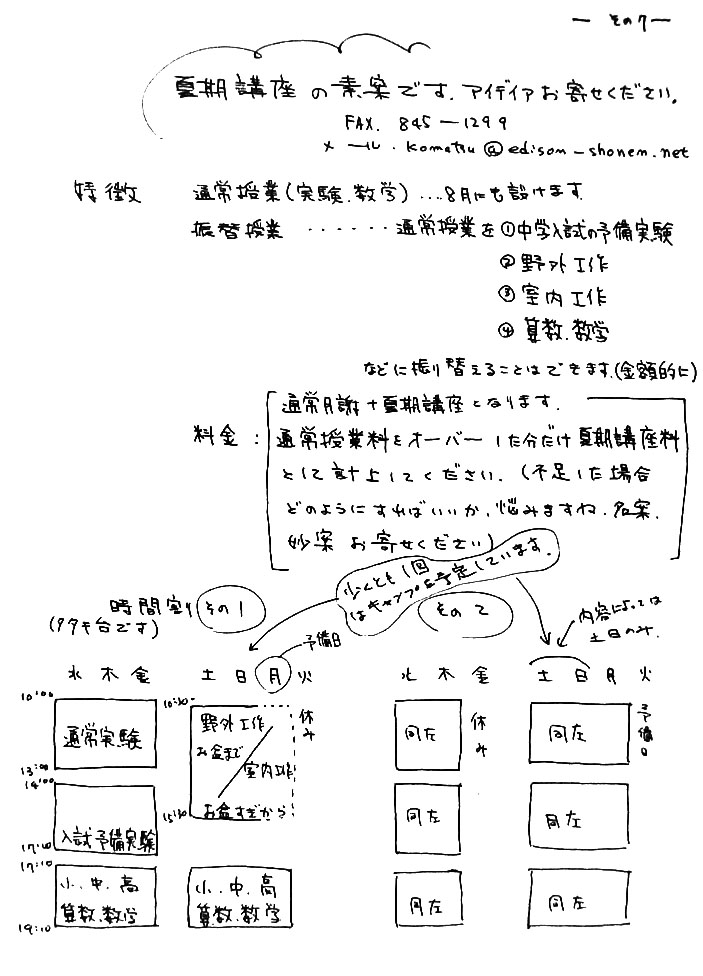 — その7 —
夏期講座の素案です.アイデアお寄せください。
FAX. 845-1299
メール. komatsu@edison-shonen.net
特徴 通常授業(実験.数学)....8月にも設けます.
振替授業 ・・・・・・通常授業を①中学入試の予備実験
②野外工作
③室内工作
④算数.数学
などに振り替えることはできます.(金額的に)
通常月謝+夏期講座となります.
料金: 通常授業料をオーバーした分だけ夏期講座料
として計上してください.(不足した場合
どのようにすればいいか,悩みますね.名案.
妙案お寄せください)
少くとも1回
はキャンプを予定しています.
時間割り その1 その2
(タタキ台です)
予備日
内容によっては
土日のみ.
水 木 金 土 日 月 火 水 木 金 土 日 月 火
10:00 13:00
通常実験
14:00 17:00
入試予備実験
17:10 19:10
小.中.高
算数.数学
10:30 15:30
野外工作
お盆まで
室内工作
お盆すぎから
休み
小.中.高
算数.数学
同左 休み 同左 予備日
同左 同左
同左 同左